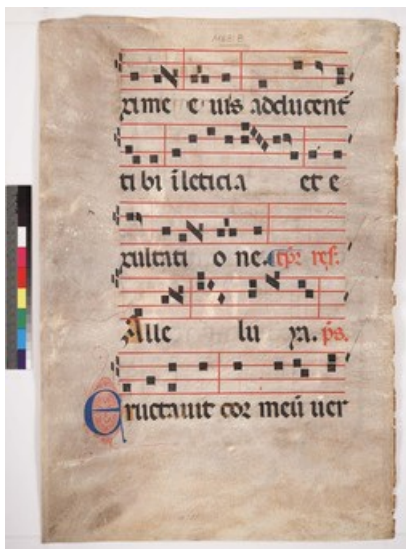 xime e uis adducent
ti bi i leticia et e
xultati o ne. tpr res.
Alle lu ya. ps.
Eructauit cor meū uer